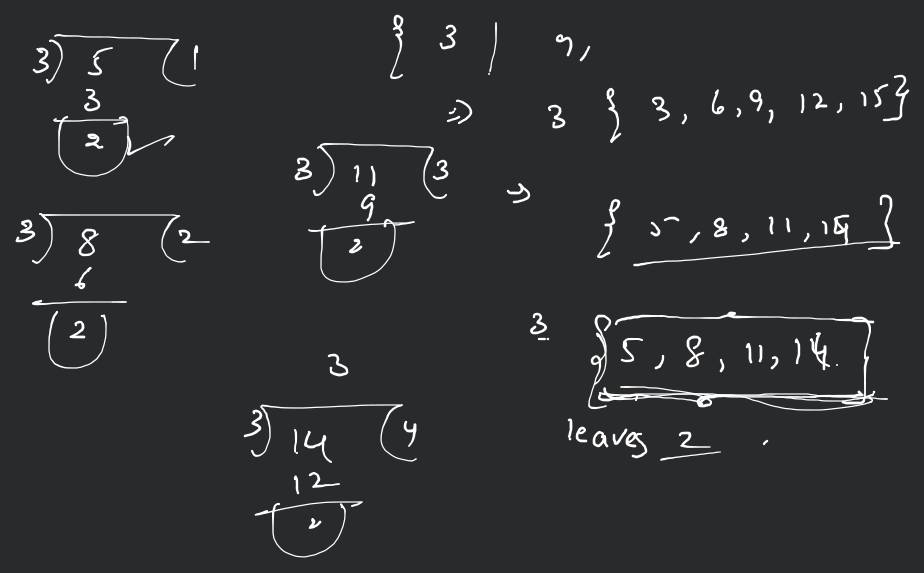 3) 5 (1
3
2
3) 8 (2
6
2
3) 11 (3
9
2
3
3) 14 (4
12
2
{ 3 | 9,
⇒ 3 { 3, 6, 9, 12, 15}
⇒ { 5, 8, 11, 14 }
3 { 5, 8, 11, 14.
leaves 2 .